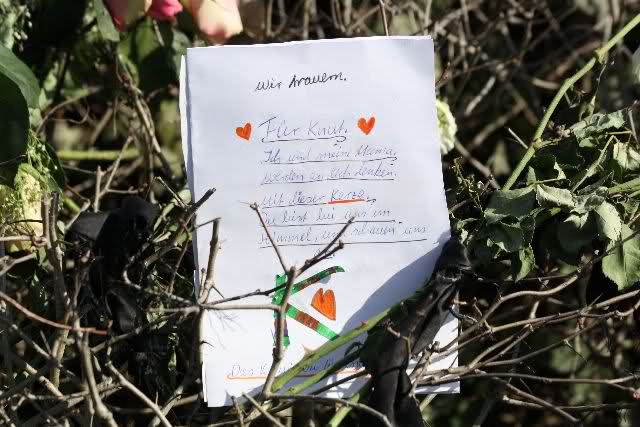 Wir trauern.
Für Knut.
Ich und meine Mama,
werden an dich denken.
Mit dieser Kerze
bist bei uns im
Himmel, schauen uns
Das